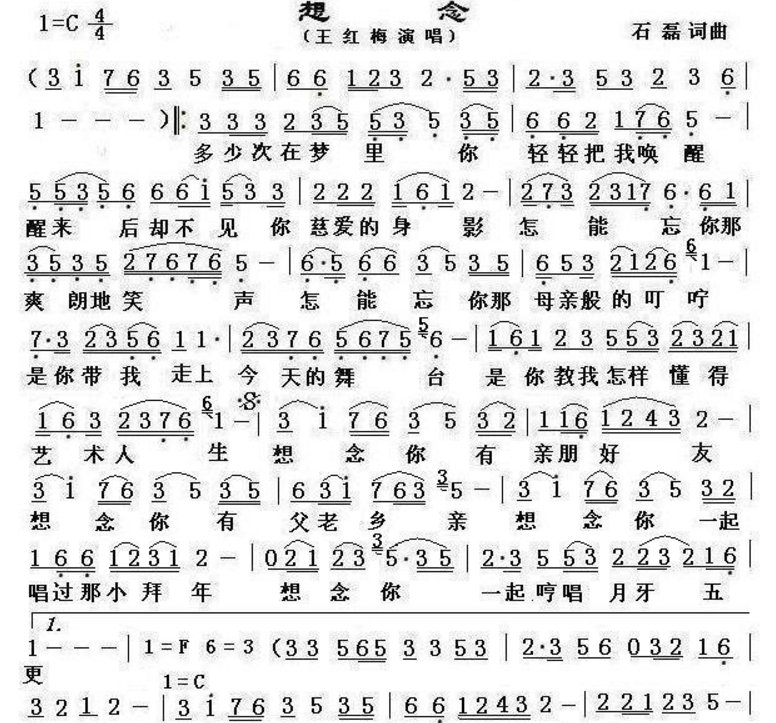 想 念
1=C 4/4
(王红梅演唱)
石磊词曲
(3 i 76 3 5 35 | 66 123 2·53 | 2·3 53 2 3 6 |
1 - - - )‖: 333 235 53 5 35 | 662 176 5 - |
多少次在梦 里 你 轻轻把我唤 醒
5 5356 66i 533 | 222 161 2 - | 273 2317 6·61 |
醒来 后却不 见 你 慈爱的身 影 怎 能 忘 你那
3535 27676 5 - | 6·5 66 353 35 | 653 2126 6 1 - |
爽 朗地笑 声 怎 能 忘 你那 母亲般的叮 咛
7·3 2356 1 1· | 2376 5675 5 6· - | 161 23 553 2321 |
是你带我 走上 今 天的舞 台 是 你教我怎样 懂得
163 2376 6 1 - | 3 i 76 3 5 32 | 116 1243 2 - |
艺术人 生 想 念 你 有 亲朋好 友
3 i 76 3 5 35 | 63i 763 3 5 - | 3 i 76 3 5 32 |
想 念 你 有 父老乡 亲 想 念 你 一起
166 1231 2 - | 021 23 3 5·35 | 2·3 553 223 216 |
唱过那小拜 年 想 念 你 一起哼唱 月牙 五
1.
1 - - - | 1=F 6=3 (33 565 3 353 | 2·3 56 032 16 |
更
1=C
3 2 1 2 - | 3 i 76 3 5 35 | 66 12432 - | 22123 5 - |